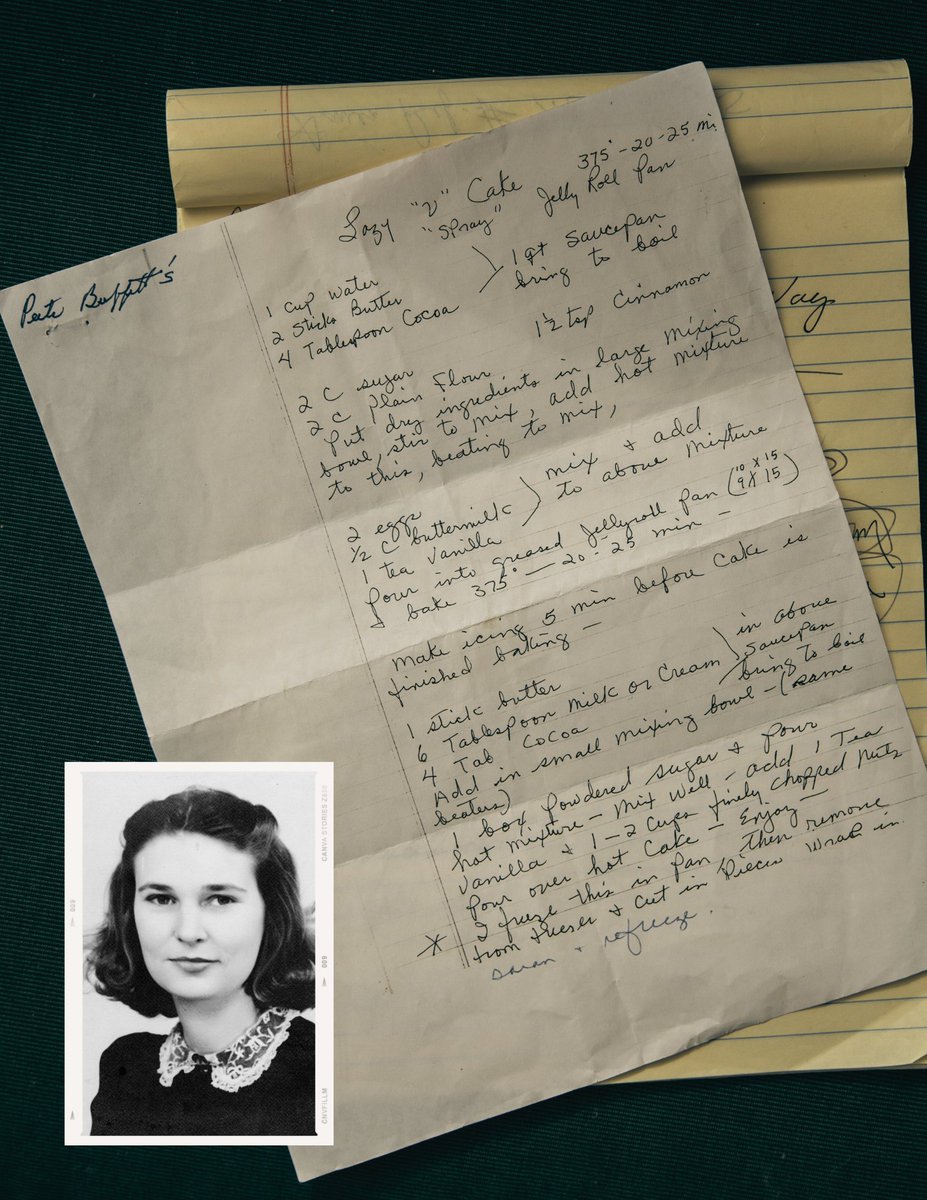 375° - 20-25 mi.
Lazy "V" Cake
"Spray" Jelly Roll Pan
Pete Buffett's
1 Cup Water
2 Sticks Butter
4 Tablespoon Cocoa
1 qt Saucepan
bring to boil
2 C sugar
2 C Plain Flour
1½ tsp Cinnamon
Put dry ingredients in large mixing
bowl, stir to mix, add hot mixture
to this, beating to mix,
2 eggs
½ C buttermilk
1 tea Vanilla
mix & add
to above mixture
Pour into greased Jellyroll pan (9 X 15)
10 X 15
& bake 375° — 20-25 min —
Make icing 5 min before cake is
finished baking —
1 stick butter
6 Tablespoon milk or Cream
4 Tab Cocoa
in above
saucepan
bring to boil
Add in small mixing bowl — (same
beaters)
1 box powdered sugar & pour
hot mixture — Mix well — add 1 Tea
Vanilla & 1-2 Cups finely chopped nuts
Pour over hot Cake — Enjoy —
* I freeze this in pan, then remove
from freser & cut in pieces wrap in
saran & refreeze.
CANVA STORIES
009
009
CNVFILLM